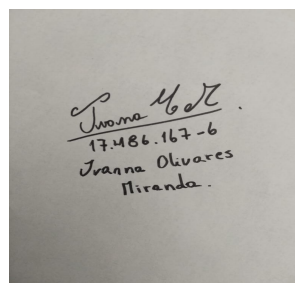 Ivanna
17.486.167-6
Ivanna Olivares
Miranda.